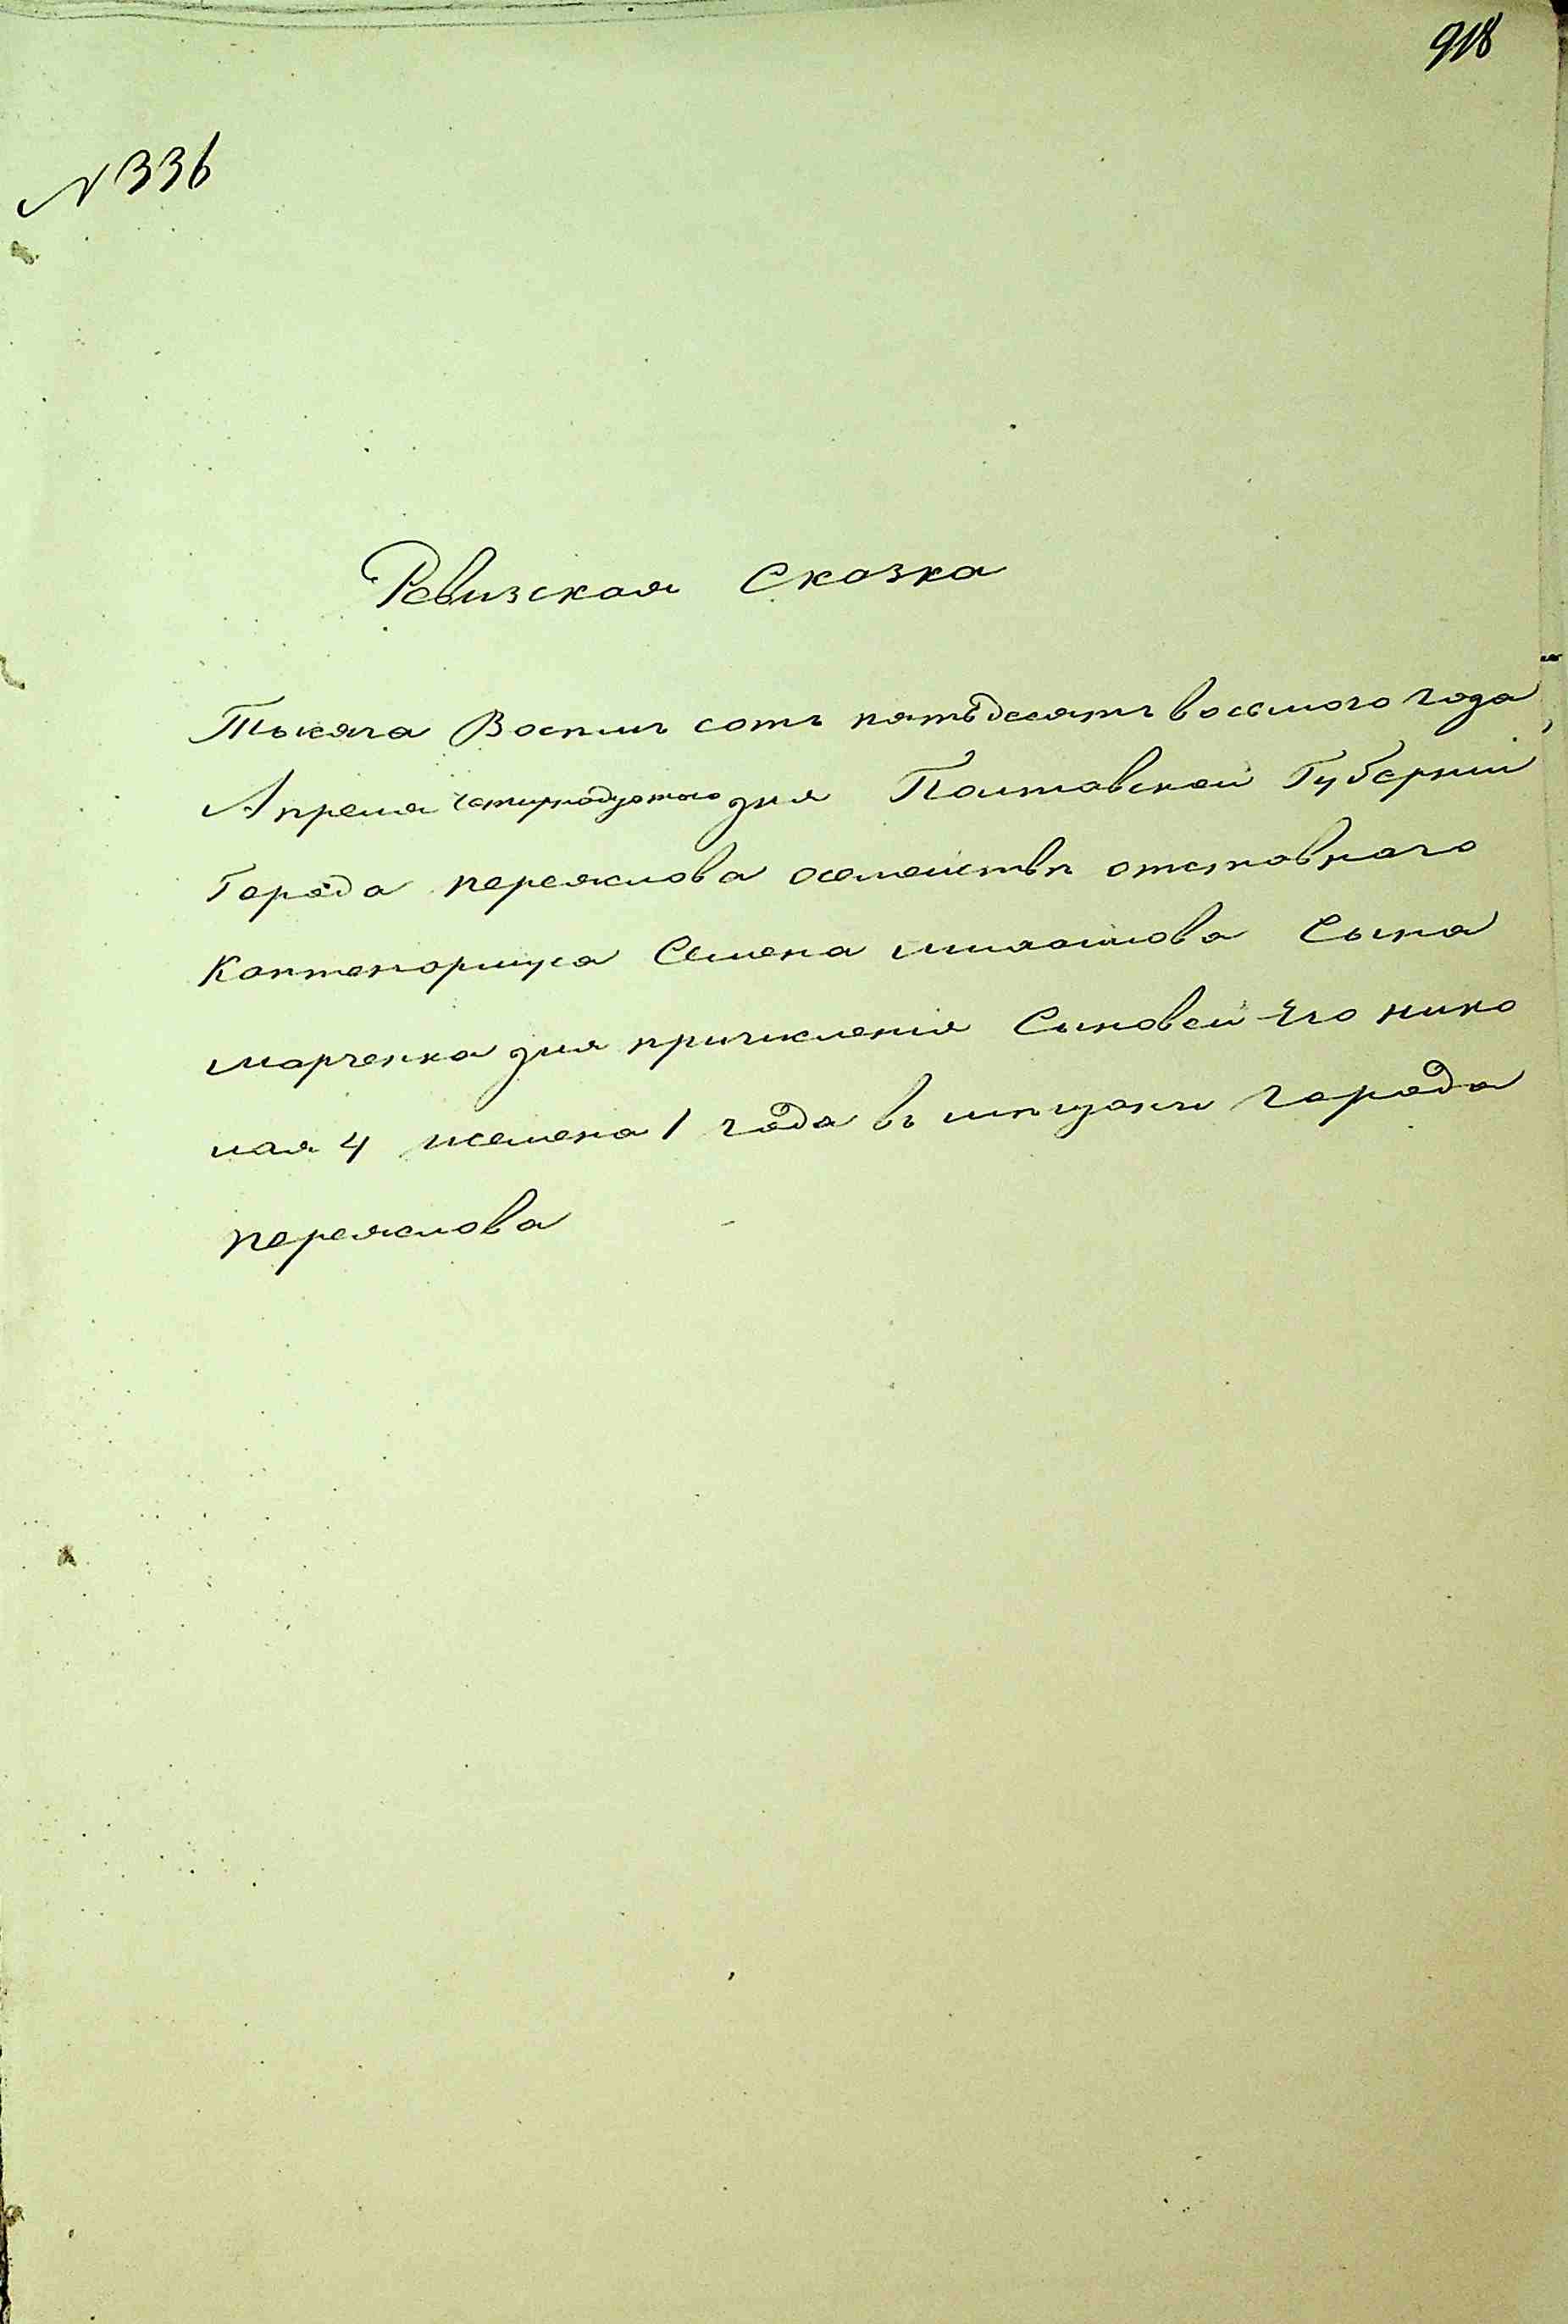 918
N 336
Ревизская Сказка
Тысяча Восѣмъ сотъ пятьдесятъ восьмого года
Апреля четирнадцатого дня Полтавской Губерніи
Города переяслова осемействѣ отставнаго
Каптенармуса Семена михайлова Сына
марченка для причисленія Сыновей Его нико
лая 4 исемена 1 года въ мѣщани города
переяслова